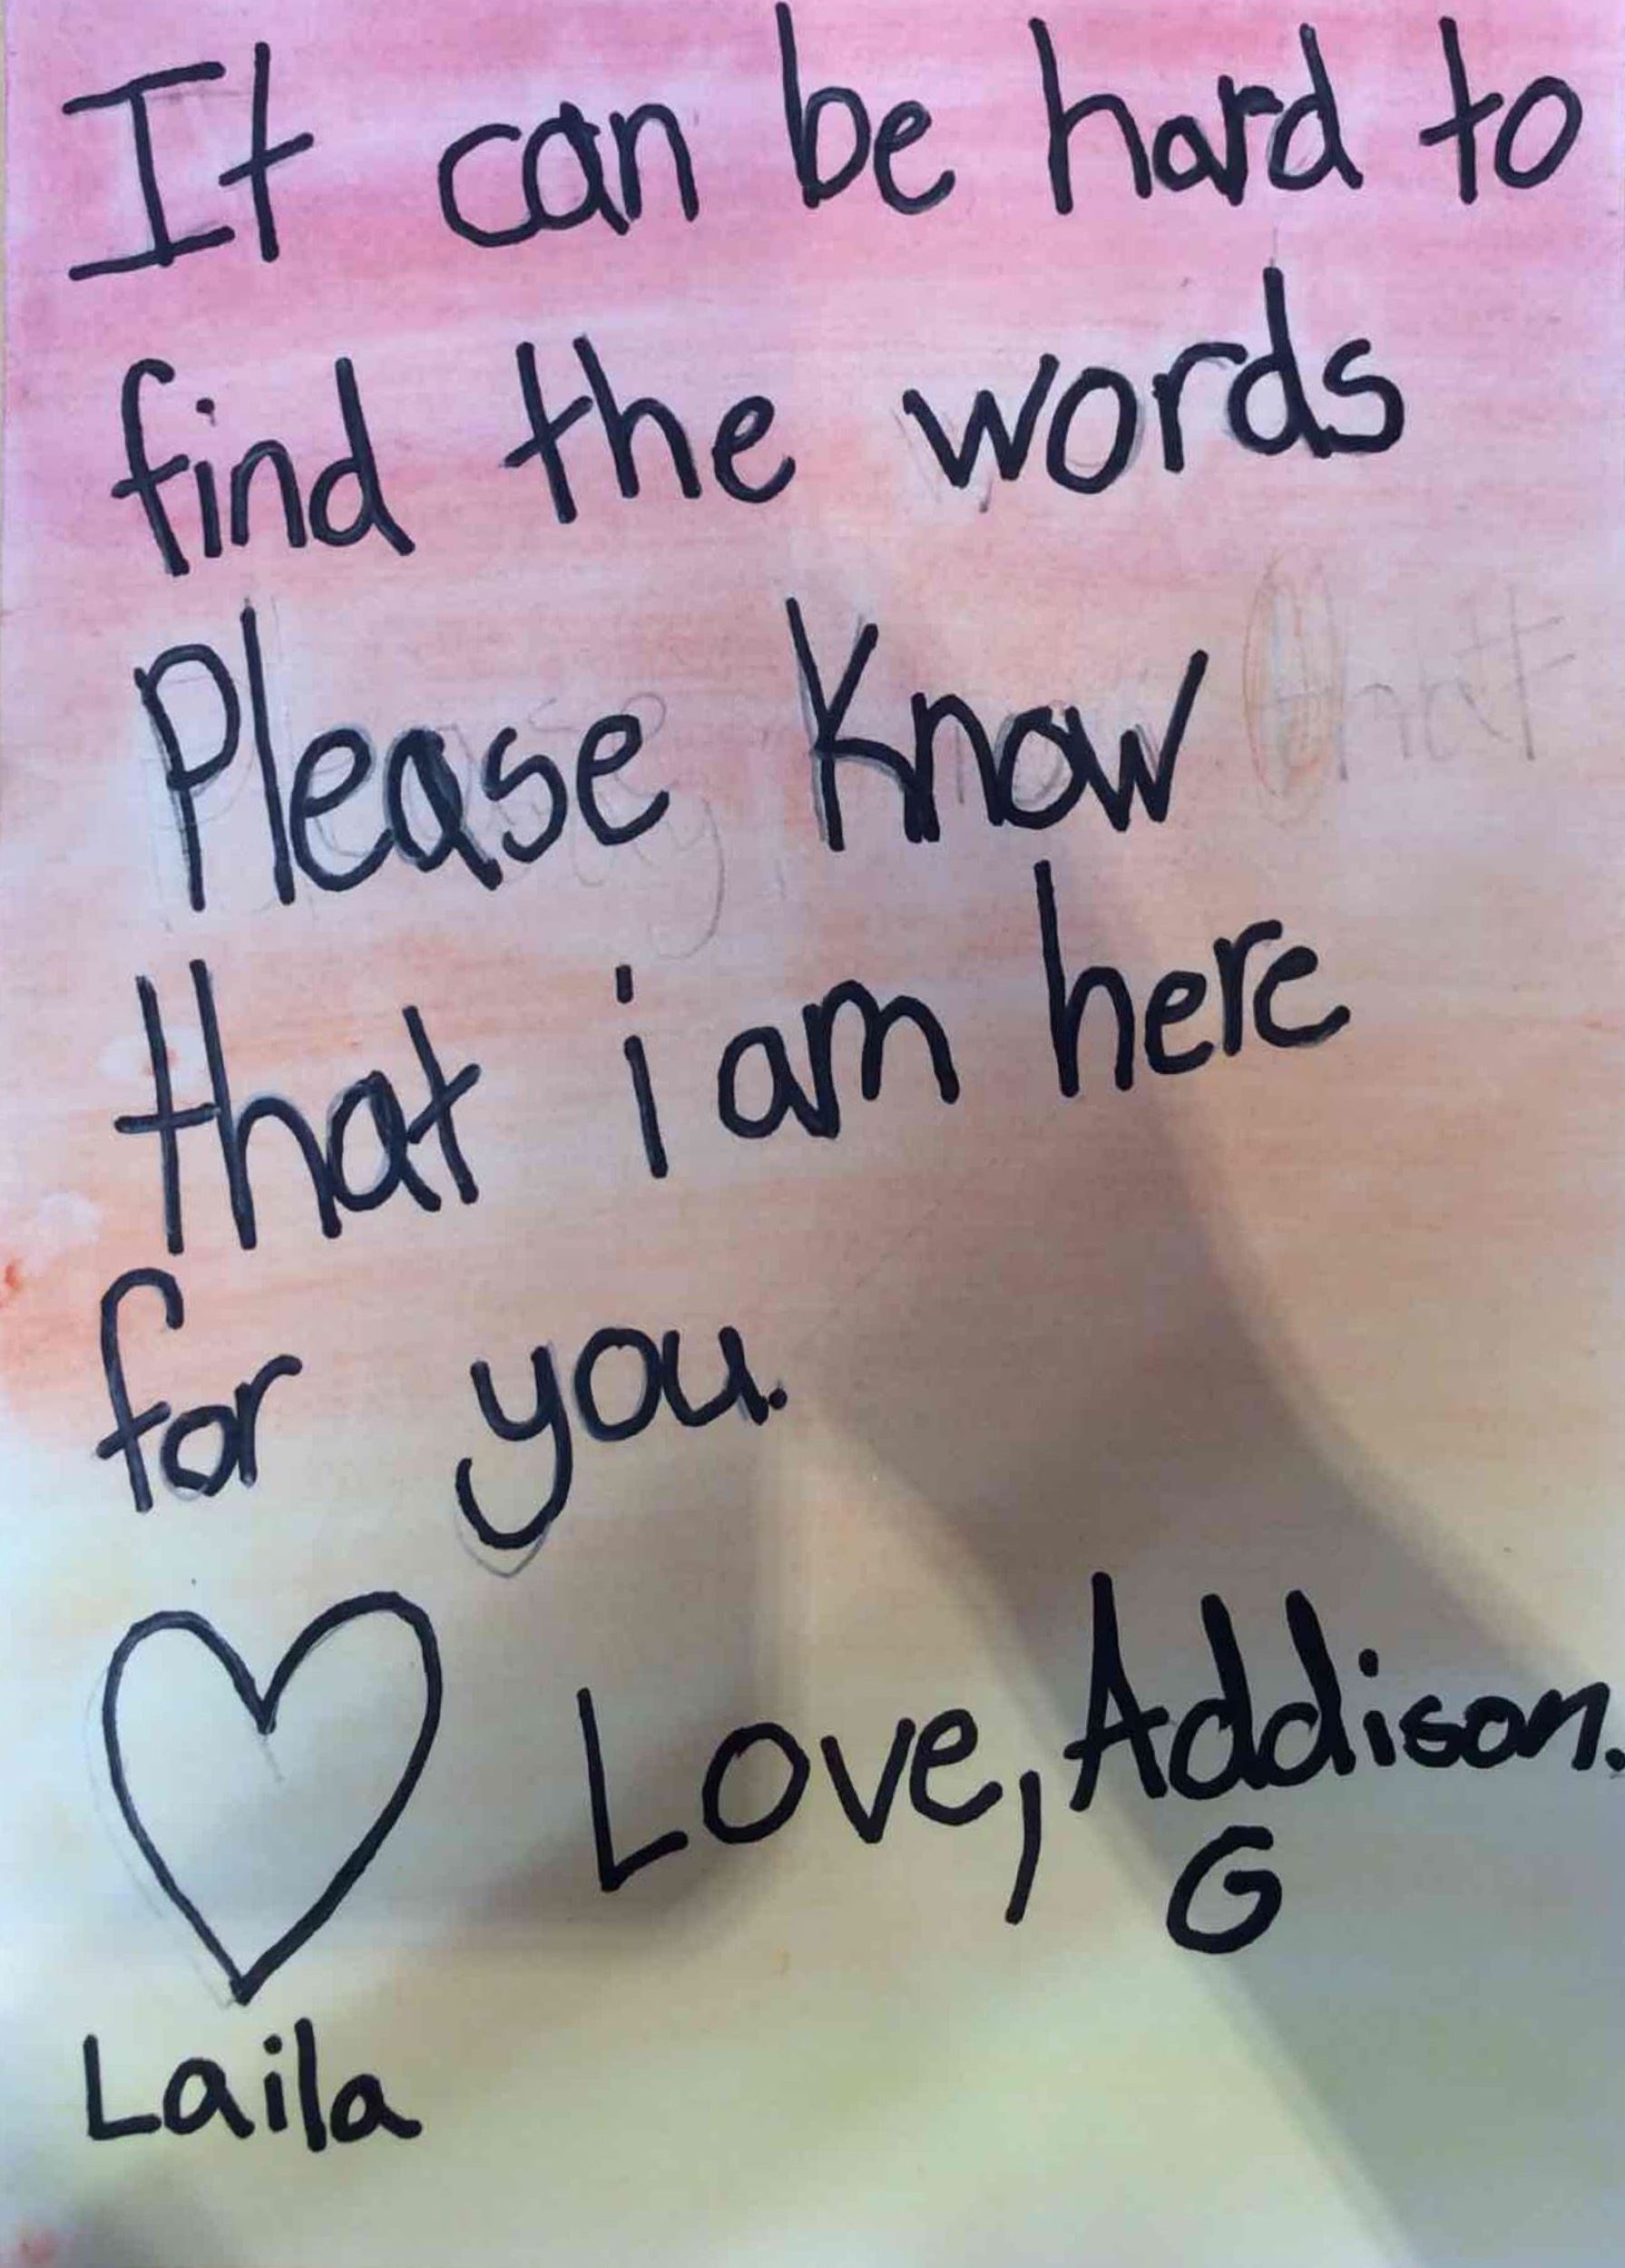 It can be hard to
find the words
Please Know
that i am here
for you.
Love, Addison.
G
Laila